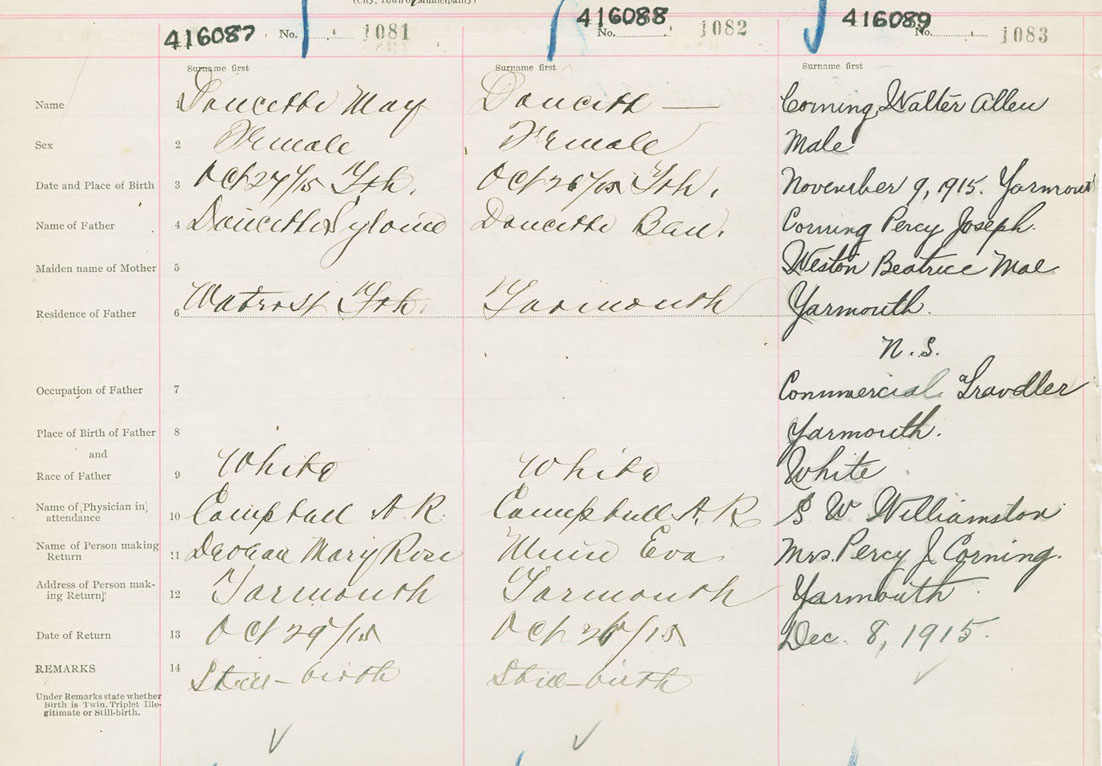 (City, Town or Municipality)
416087 No. 1081
416088 No. 1082
416089 No. 1083
Surname first Surname first Surname first
Name 1 Doucette May Doucett — Corning Walter Allen
Sex 2 Female Female Male
Date and Place of Birth 3 Oct 27/15 Yth. Oct 26/15 Yth. November 9, 1915. Yarmouth
Name of Father 4 Doucette Sylvine Doucette Corning Percy Joseph.
Maiden name of Mother 5 Weston Beatrice Mae
Residence of Father 6 Water st Yth. Yarmouth Yarmouth.
N.S.
Occupation of Father 7 Commercial Travdler
Place of Birth of Father 8 Yarmouth.
and
Race of Father 9 White White White
Name of [Physician in] attendance 10 Campbell A.R. Campbell A.R. S W Williamston
Name of Person making Return 11 Mary Rose Eva Mrs. Percy J. Corning.
Address of Person making Return 12 Yarmouth Yarmouth Yarmouth
Date of Return 13 Oct 29/15 Oct 26/15 Dec. 8, 1915.
REMARKS 14 Still-birth Still-birth
Under Remarks state whether
Birth is Twin, Triplet Ille-
gitimate or Still-birth.